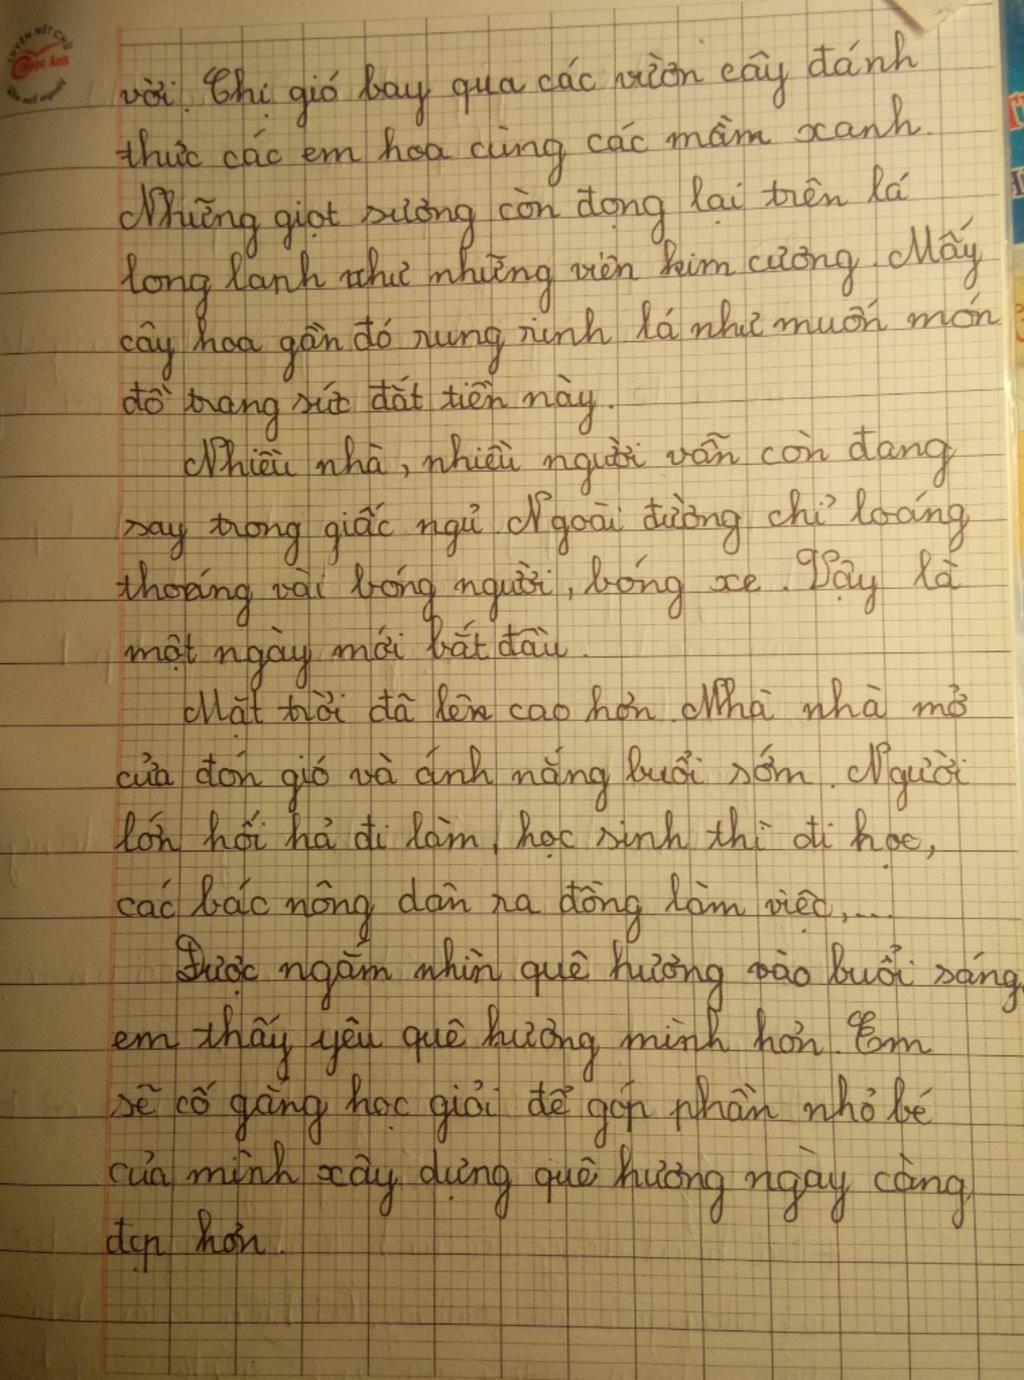 LUYỆN NÉT CHỮ
Ngọc Ánh
Rèn nết người
vời. Chị gió bay qua các vườn cây đánh
thức các em hoa cùng các mầm xanh.
Những giọt sương còn đọng lại trên lá
long lanh như những viên kim cương. Mấy
cây hoa gần đó rung rinh lá như muốn món
đồ trang sức đắt tiền này.
Nhiều nhà, nhiều người vẫn còn đang
say trong giấc ngủ. Ngoài đường chỉ loáng
thoáng vài bóng người, bóng xe. Vậy là
một ngày mới bắt đầu.
Mặt trời đã lên cao hơn. Nhà nhà mở
cửa đón gió và ánh nắng buổi sớm. Người
lớn hối hả đi làm, học sinh thì đi học,
các bác nông dân ra đồng làm việc,...
Được ngắm nhìn quê hương vào buổi sáng,
em thấy yêu quê hương mình hơn. Em
sẽ cố gắng học giỏi để góp phần nhỏ bé
của mình xây dựng quê hương ngày càng
đẹp hơn.